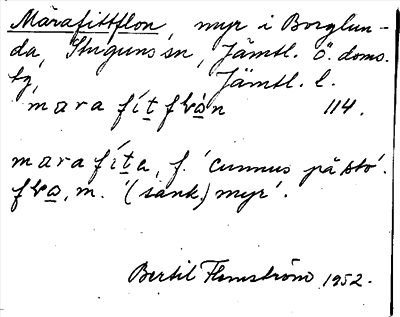 Märafittflon, myr i Borglun-
da, Stuguns sn, Jämtl. ö. doms.
tg, Jämtl. l.
mara fítflọn 114.
mara fíta, f. 'cunnus på sto'.
flọ, m. '(sank) myr'.
Bertil Flemström 1952.